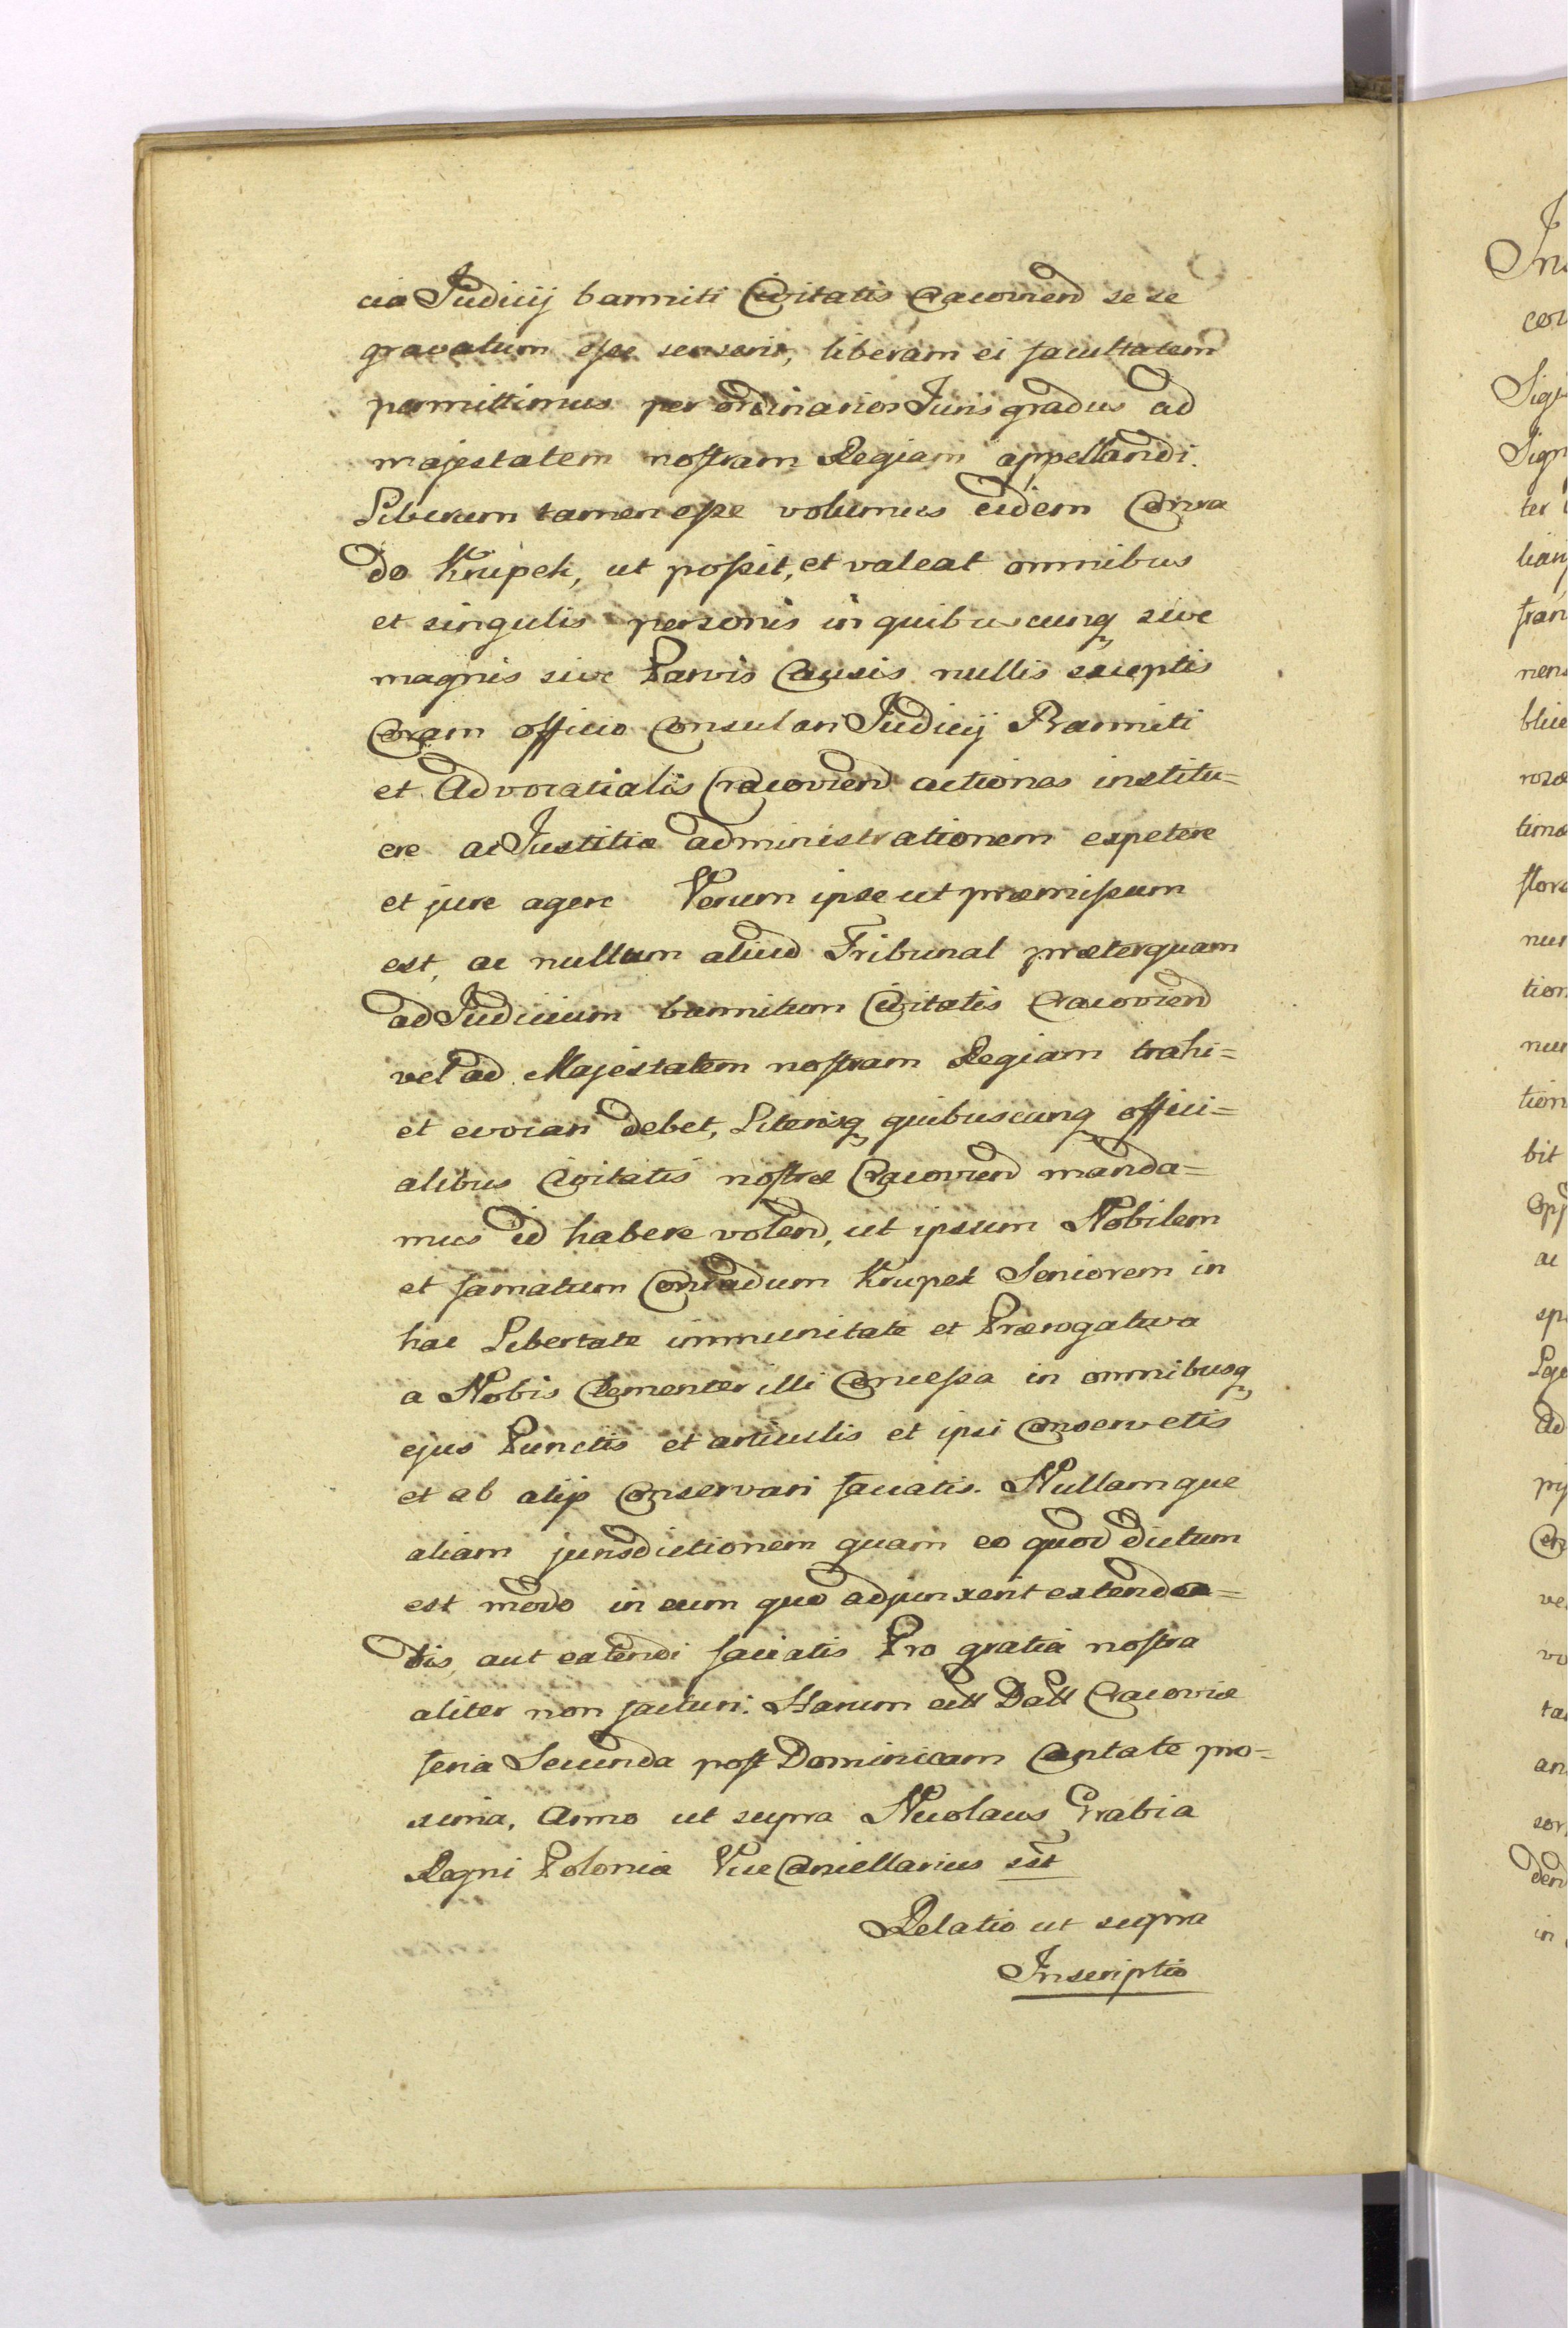 cia Judicij banniti Civitatis Cracoviend se se
gravatum esse senserit, liberam ei facultatem
permittimus per ordinarios Juris gradus ad
majestatem nostram Regiam appellandi.
Liberum tamen esse volumus eidem Conra
do Krupek, ut possit, et valeat omnibus
et singulis personis in quibuscunq sive
magnis sive Parvis Causis nullis exceptis
Coram officio Consulari Judicij Banniti
et Advocatialis Cracoviend actiones institu=
ere ac Justitiæ administrationem expetere
et jure agere Verum ipse ut præmissum
est, ac nullum aliud Tribunal præterquam
ad Judicium bannitum Civitatis Cracoviend
vel ad Majestatem nostram Regiam trahi=
et evocari debet, Literisq quibuscunq offici=
alibus Civitatis nostræ Cracoviend manda=
mus id habere volend, ut ipsum Nobilem
et famatum Conradum Krupek Seniorem in
hac Libertate immunitate et Prærogativa
a Nobis Clementer illi Concessa in omnibusq
ejus Punctis et articulis et ipsi Conservetis
et ab alijs Conservari faciatis. Nullamque
aliam jurisdictionem quam eo quod dictum
est modo in eum quo adjunxerit extenda=
tis, aut extendi faciatis Pro gratia nostra
aliter non facturi. Harum ett Datt Cracoviæ
feria Secunda post Dominicam Cantate pro=
xima, Anno ut supra Nicolaus Grabia
Regni Poloniæ Vice Cancellarius sst
Relatio ut supra
Inscriptio